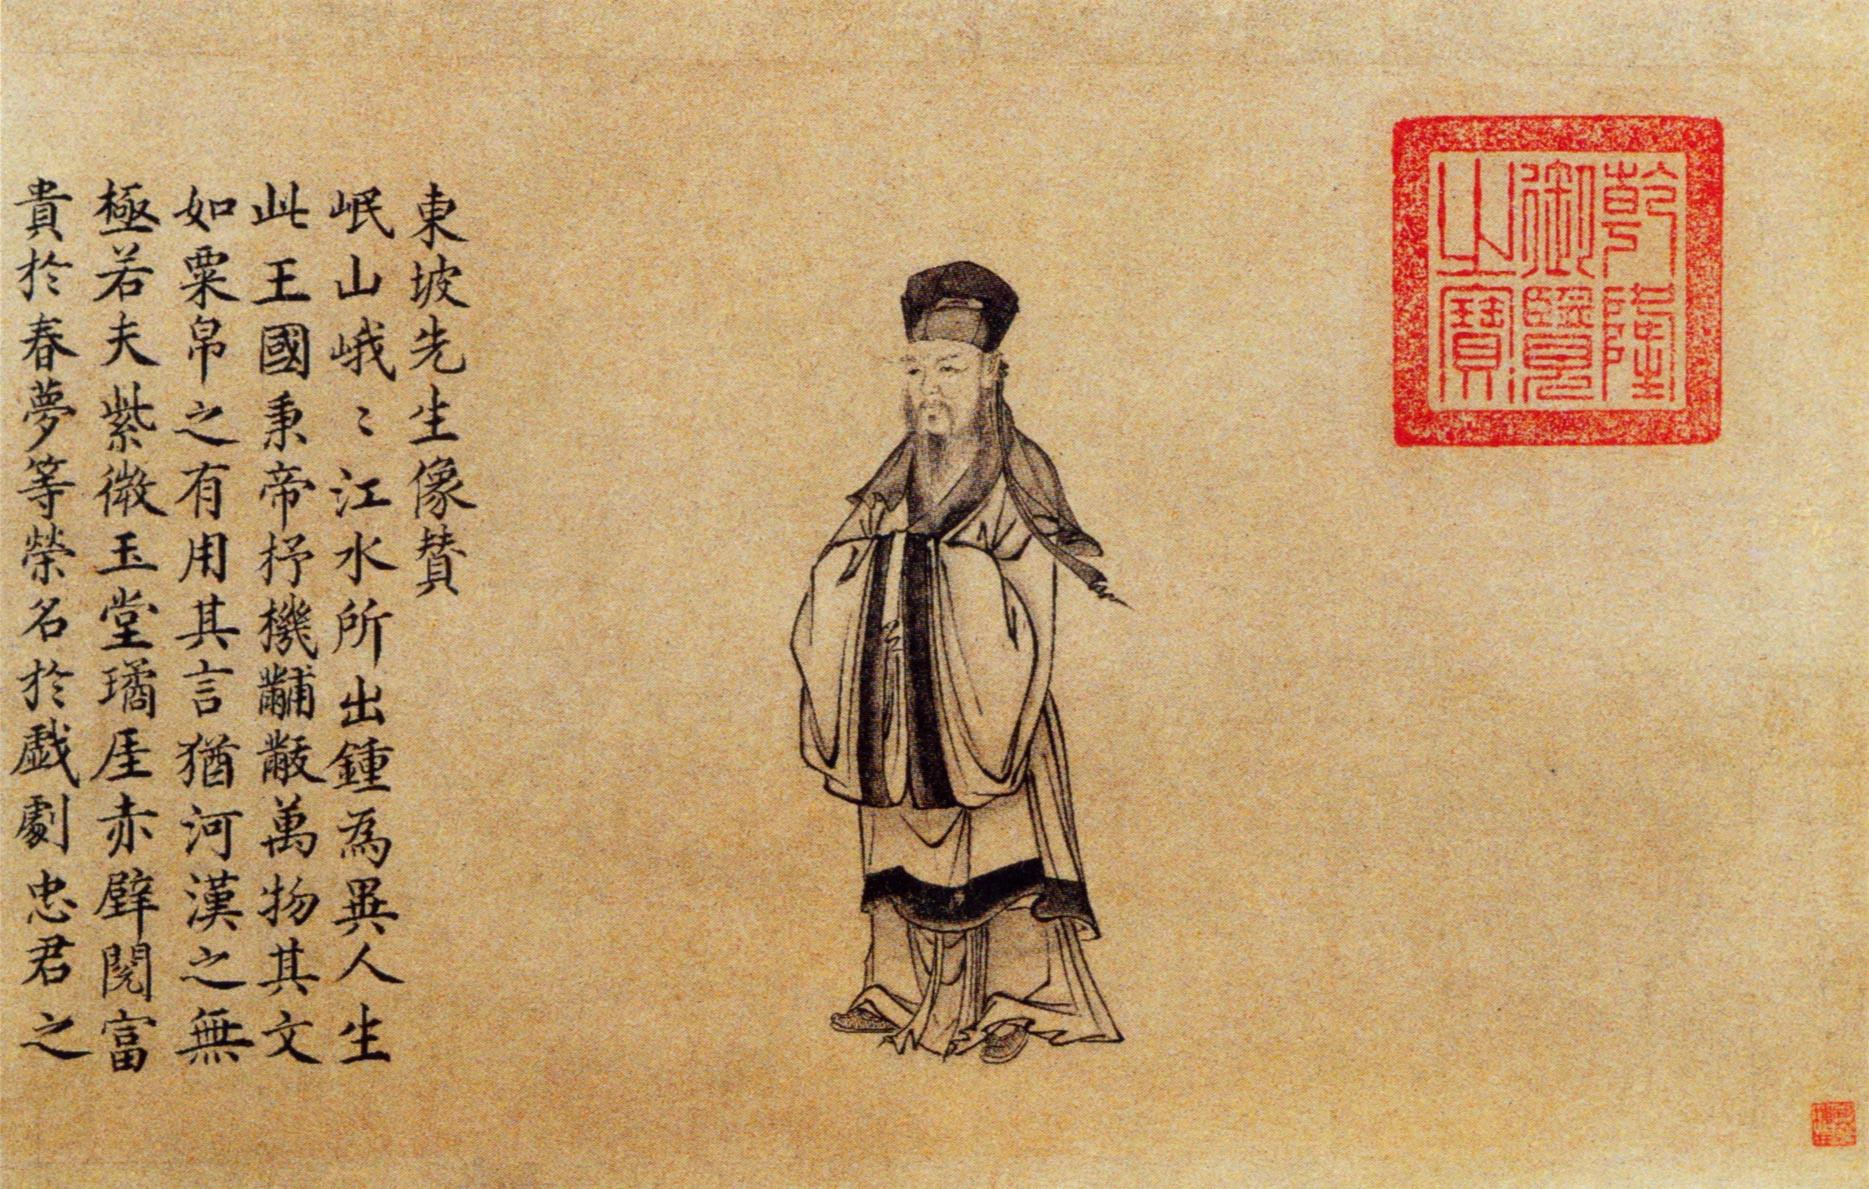 乾隆
御覽
之寶
東坡先生像贊
岷山峨〻江水所出鍾為異人生
此王國秉帝杼機黼黻萬物其文
如粟帛之有用其言猶河漢之無
極若夫紫微玉堂璚厓赤壁閱富
貴於春夢等榮名於戯劇忠君之